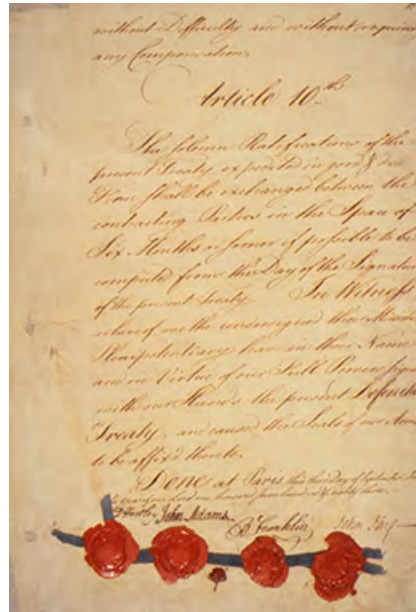 without Difficulty and without requiring
any Compensation.
Article 10th
The solemn Ratifications of the
present Treaty expedited in good & due
Form shall be exchanged between the
contracting Parties in the Space of
Six Months or sooner if possible to be
computed from the Day of the Signature
of the present Treaty. In Witness
whereof we the undersigned their Ministers
Plenipotentiary have in their Name
and in Virtue of our Full Powers signed
with our Hands the present Definitive
Treaty, and caused the Seals of our Arms
to be affix'd thereto.
Done at Paris, this third Day of September, In
the year of our Lord one thousand seven hundred & eighty three.
D Hartley John Adams. B Franklin John Jay